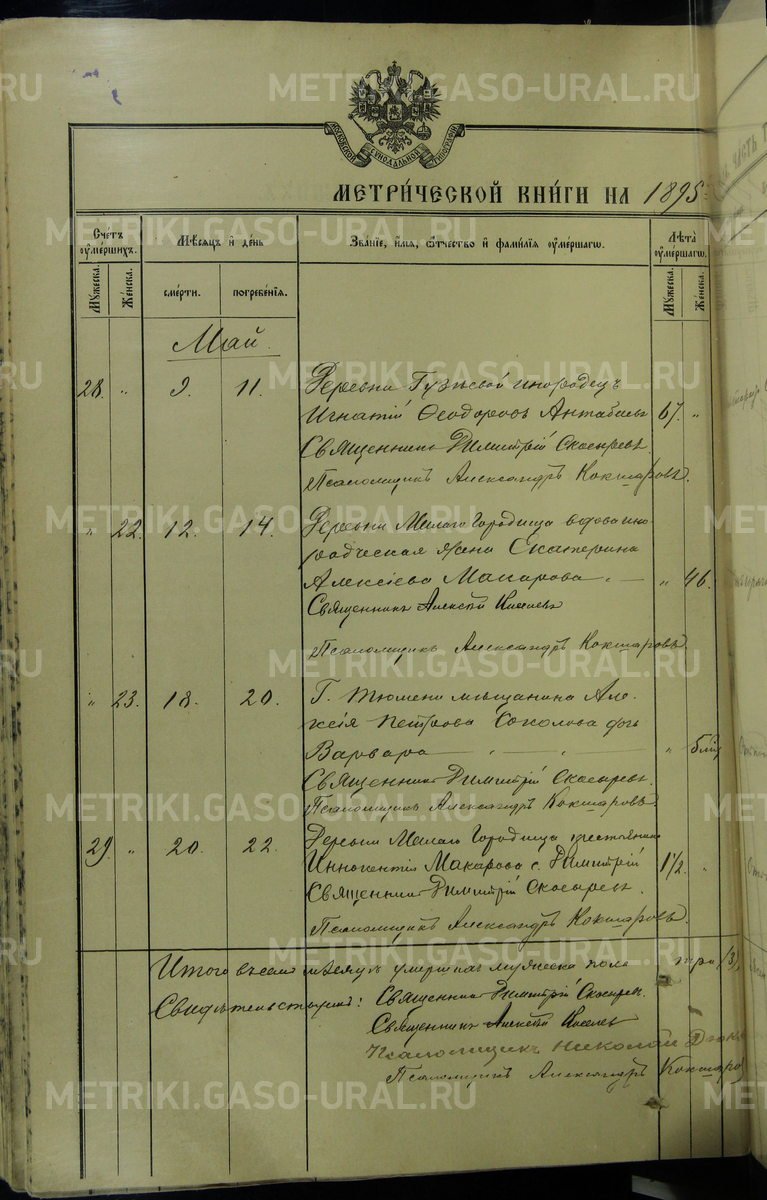 METRIKI.GASO-URAL.RU
МОСКОВСКОЙ СѴНОДАЛЬНОЙ ТИПОГРАФІИ
МЕТРИЧЕСКОЙ КНИГИ НА 1895
Счетъ оумершихъ.
Мѣсяцъ и день
Званіе, имя, отчество и фамилія оумершаго.
Лѣта оумершаго.
Мужеска.
Женска.
смерти.
погребенія.
Мужеска.
Женска.
Май.
28. " 9. 11. Деревни Гузѣевой инородецъ
Игнатій Ѳеодоровъ 67. "
Священникъ Димитрій Скосыревъ.
Псаломщикъ Александръ Кокшаровъ.
" 22. 12. 14. Деревни Малаго Городища вдова ино
родческая жена Екатерина
Алексіева Макарова " 46.
Священникъ Алексій Киселевъ
Псаломщикъ Александръ Кокшаровъ
" 23. 18. 20. Г. Тюмени мѣщанина Але-
ксія Петрова Соколова дочь
Варвара "
Священникъ Димитрій Скосыревъ.
Псаломщикъ Александръ Кокшаровъ.
29. " 20. 22. Деревни Малаго Городища крестьянина
Иннокентія Макарова с. Димитрій 1 1/2. "
Священникъ Димитрій Скосыревъ.
Псаломщикъ Александръ Кокшаровъ.
Итого въ маѣ умершихъ мужеска пола три (3)
Свидѣтельствуютъ: Священникъ Димитрій Скосыревъ.
Священникъ Алексій Киселевъ
Псаломщикъ Николай
Псаломщикъ Александръ Кокшаровъ